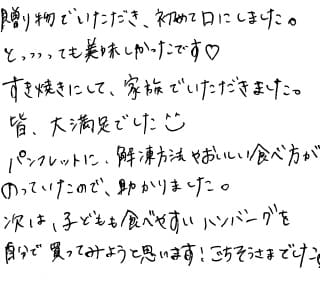 贈り物でいただき、初めて口にしました。
とっっっっても美味しかったです♡
すき焼きにして、家族でいただきました。
皆、大満足でした☺
パンフレットに、解凍方法やおいしい食べ方が
のっていたので、助かりました。
次は、子どもも食べやすいハンバーグを
自分で買ってみようと思います!ごちそうさまでした。